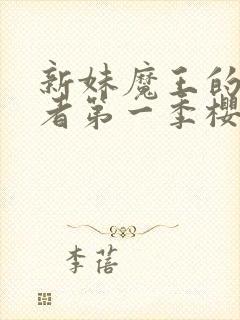 新妹魔王的
者第一季樱
李蓓